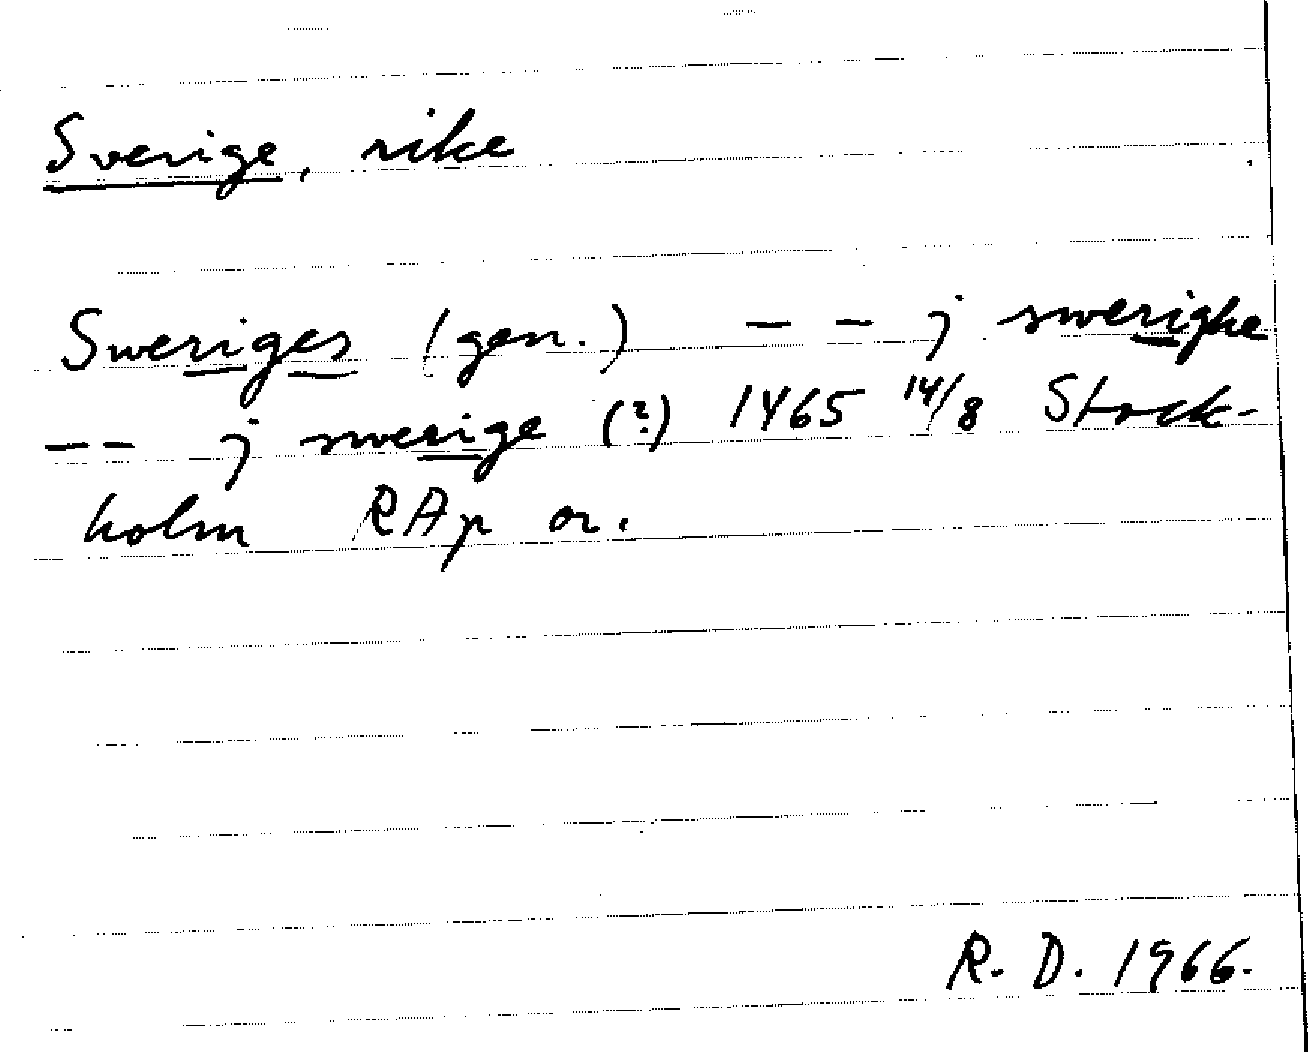 Sverige, rike
Sweriges (gen.) — — j swerighe
— — j swerige (?) 1465 14/8 Stock-
holm RAp or.
R. D. 1966.